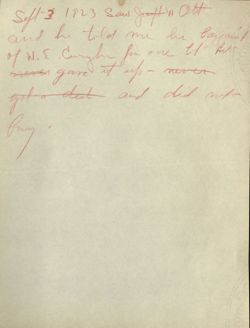 Sept 3 1923 Saw Jeff N Ott
and he told me he bargained
of W.E. for one lt but
never gave it up - never
got a deed and did not
pay.